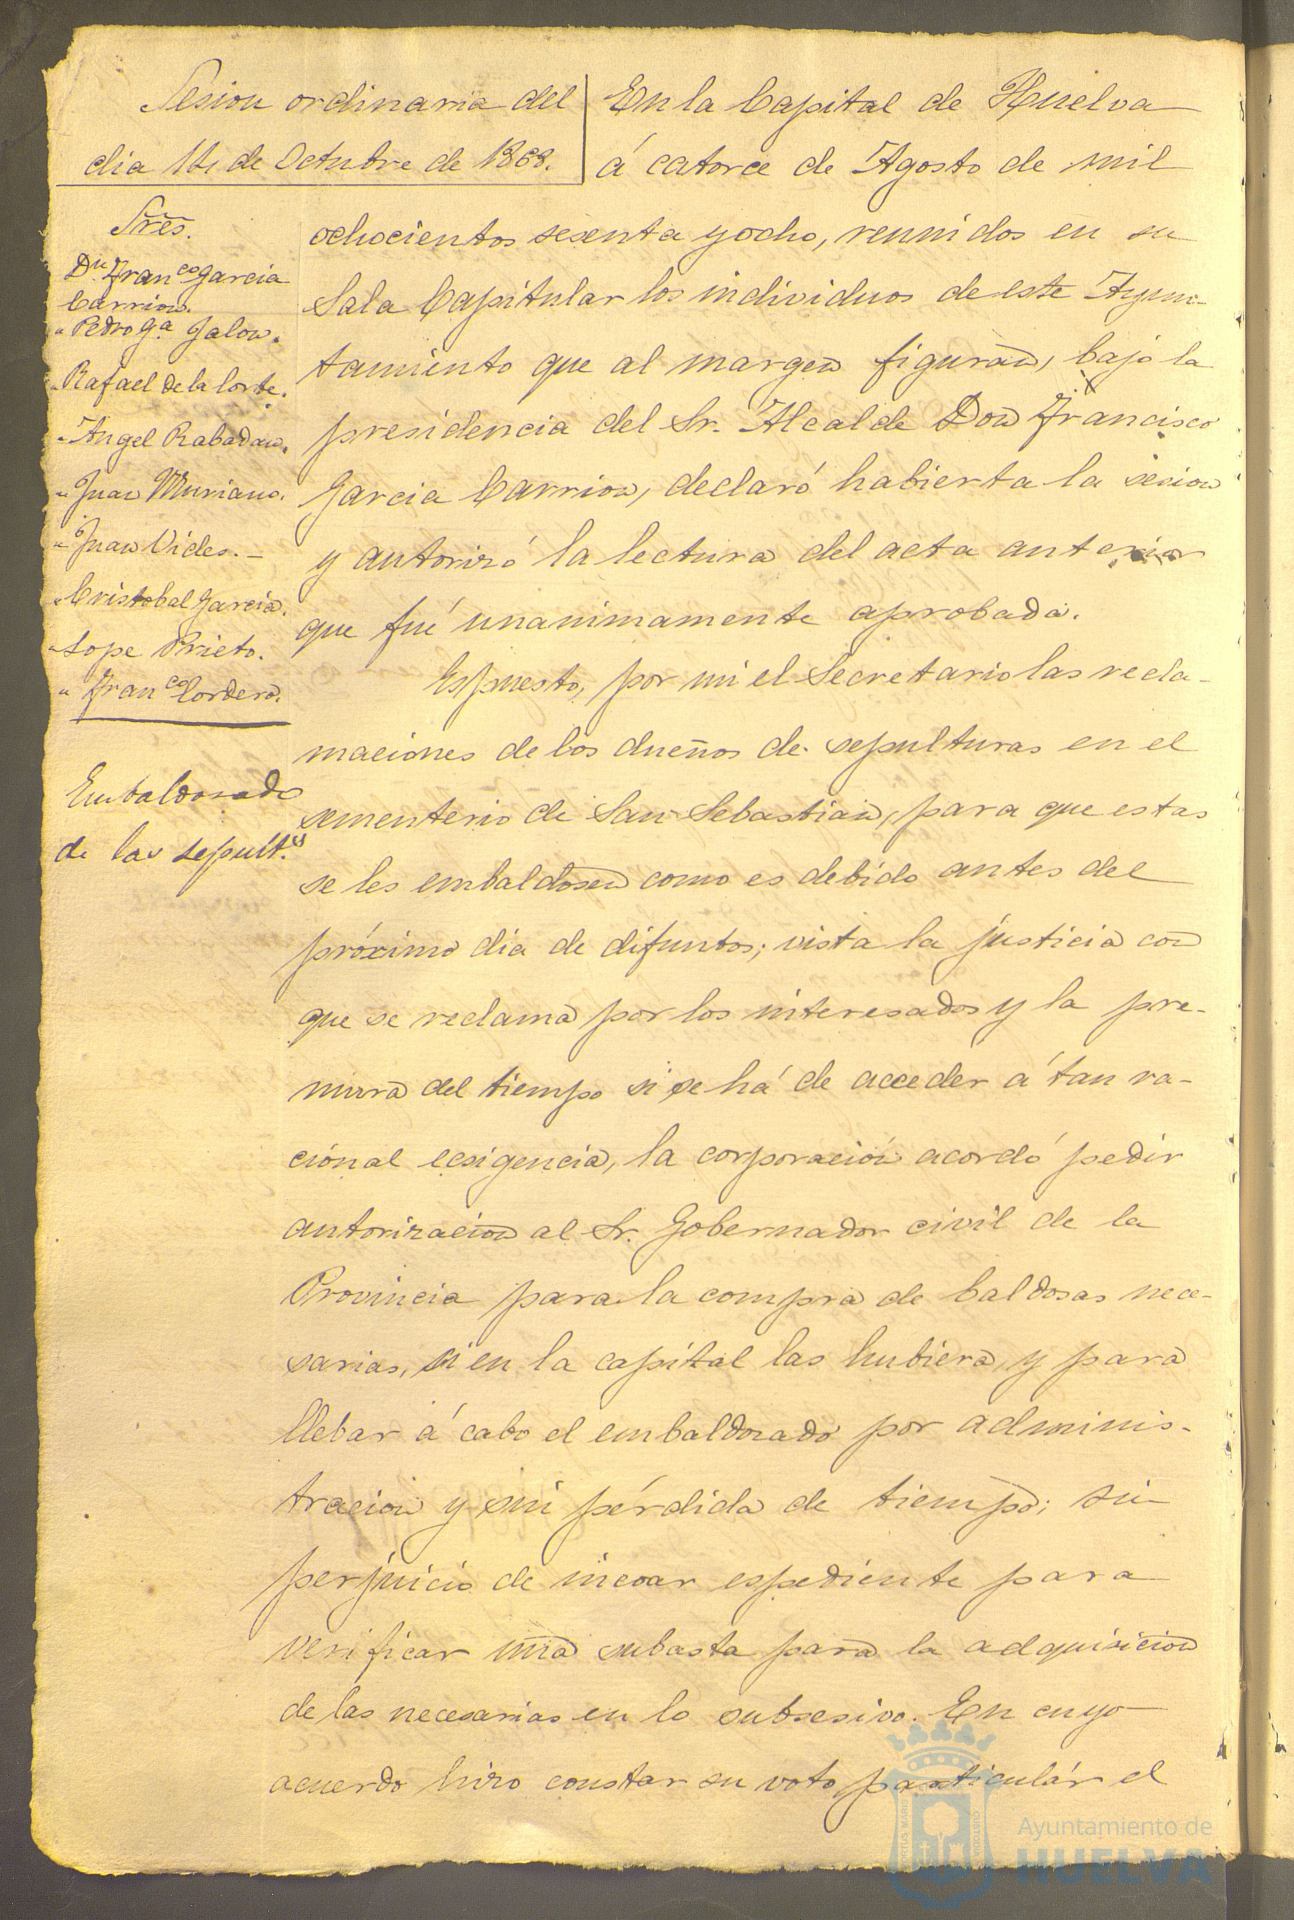 Sesion ordinaria del
dia 14 de Octubre de 1868.
Sres.
Dn. Franco. Garcia
Carrion.
" Pedro Ga. Jalon.
" Rafael de la Corte.
" Angel Rabadan.
" Juan Muriano.
" Juan Vides.
" Cristobal Garcia.
" Lope Prieto.
" Franco. Cordero.
Embaldosado
de las sepult.s
En la Capital de Huelva
á catorce de Agosto de mil
ochocientos sesenta y ocho, reunidos en su
Sala Capitular los individuos de este Ayun-
tamiento que al margen figuran, bajo la
presidencia del Sr. Alcalde Don Francisco
Garcia Carrion, declaró habierta la sesion
y autorizó la lectura del acta anterior
que fué unanimamente aprobada.
Espuesto, por mi el Secretario las recla-
maciones de los dueños de sepulturas en el
sementerio de San Sebastian, para que estas
se les embaldosen como es debido antes del
próximo dia de difuntos; vista la justicia con
que se reclama por los interesados y la pre-
mura del tiempo si se há de acceder á tan ra-
cional ecsigencia, la corporación acordó pedir
autorizacion al Sr. Gobernador civil de la
Provincia para la compra de baldosas nece-
sarias, si en la capital las hubiera, y para
llebar á cabo el embaldosado por adminis-
tracion y sin pérdida de tiempo; sin
perjuicio de incoar espediente para
verificar una subasta para la adquisicion
de las necesarias en lo subsesivo. En cuyo
acuerdo hizo constar su voto particulár el
Ayuntamiento de
HUELVA